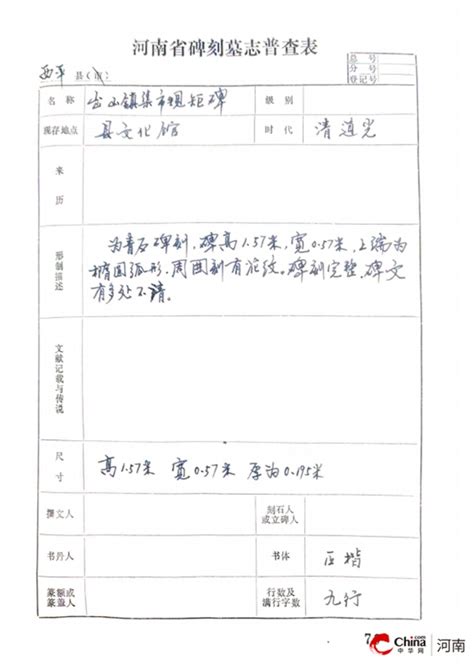 河南省碑刻墓志普查表
总号
分号
登记号
西平县(市)
名称 出山镇集市规矩碑 级别
现存地点 县文化馆 时代 清道光
来历
形制描述 为青石碑刻,碑高1.57米,宽0.57米,上端为
椭圆弧形,周围刻有花纹。碑刻完整,碑文
有多处不清。
文献记载与传说
尺寸 高1.57米 宽0.57米 厚为0.195米
撰文人 刻石人或立碑人
书丹人 书体 正楷
篆额或篆盖人 行数及满行字数 九行
7
China.com
中华网
河南